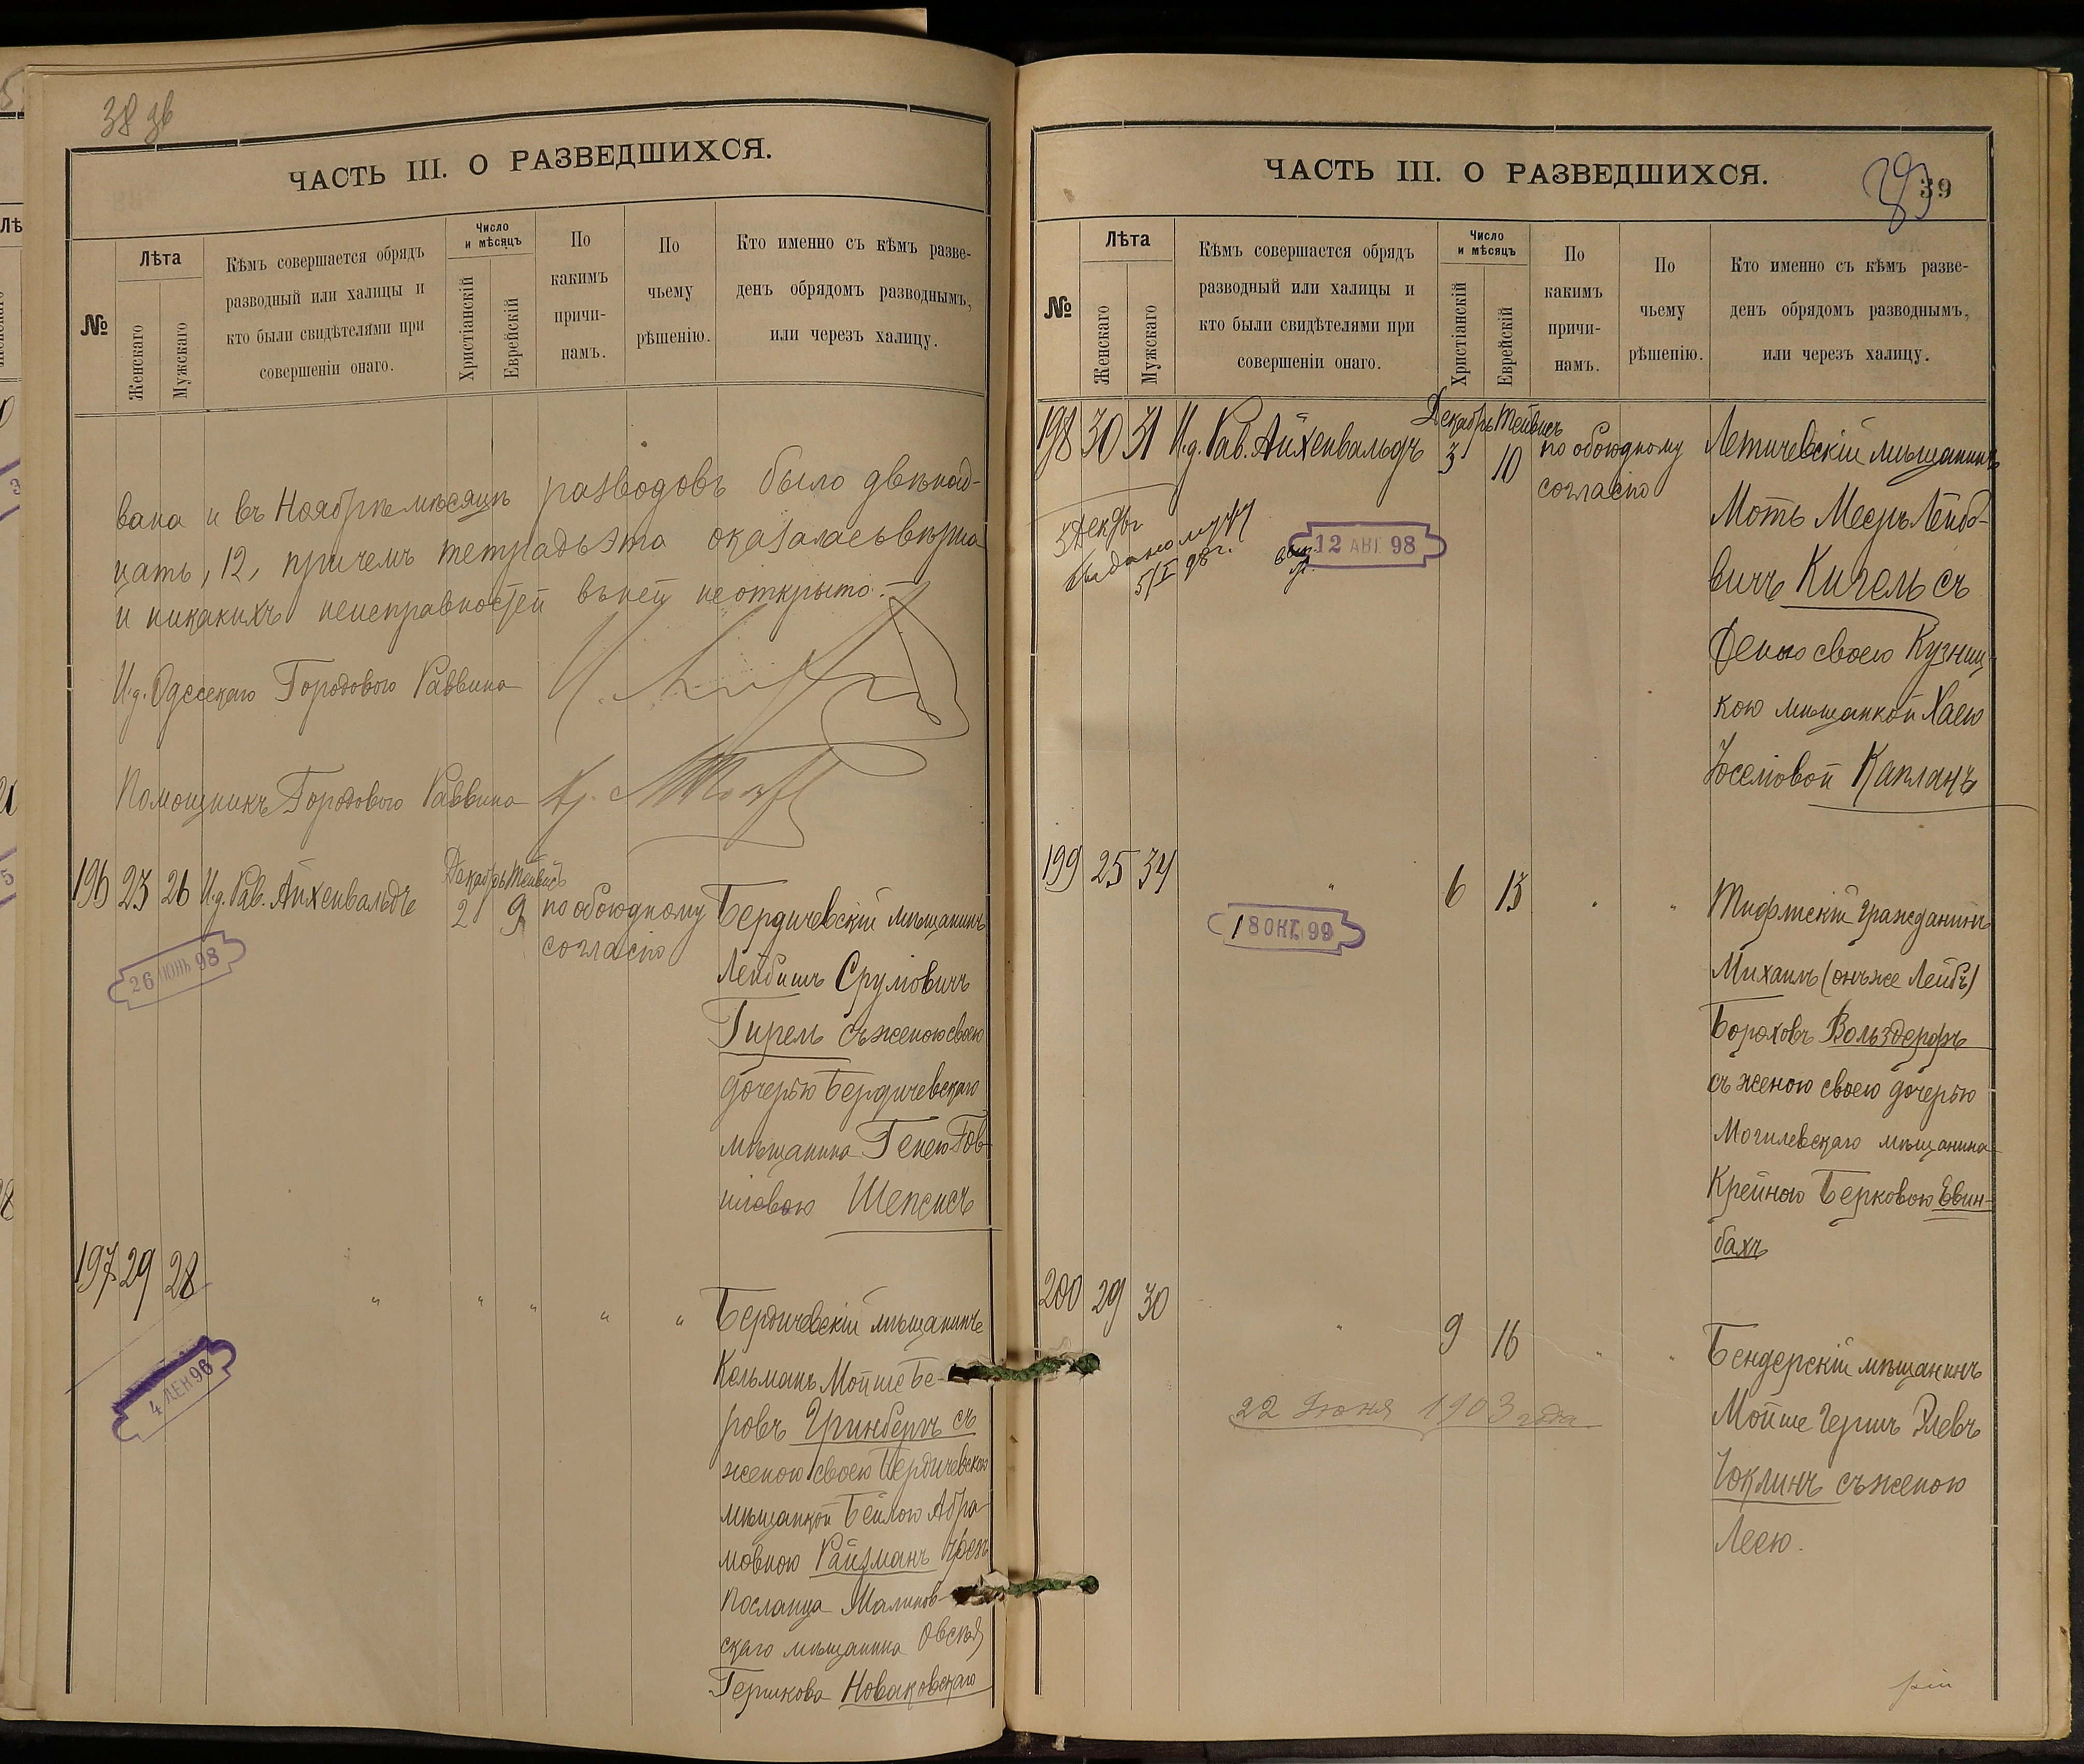 38 об
ЧАСТЬ III. О РАЗВЕДШИХСЯ.
№
Лѣта
Женскаго
Мужскаго
Кѣмъ совершается обрядъ
разводный или халицы и
кто были свидѣтелями при
совершеніи онаго.
Число
и мѣсяцъ
Христіанскій
Еврейскій
По
какимъ
причи-
намъ.
По
чьему
рѣшенію.
Кто именно съ кѣмъ разве-
денъ обрядомъ разводнымъ,
или черезъ халицу.
вана и въ Ноябрѣ мѣсяцѣ разводовъ было двѣнад-
цать, 12, причемъ тетрадь эта оказалась вѣрна
и никакихъ неисправностей въ ней не открыто.
И.д. Одесскаго Городового Раввина
Помощникъ Городового Раввина
196 23 26 И.д. Рав. Айхенвальдъ
Декабрь Тейвисъ
2 9
по обоюдному
согласію
Бердичевскій мѣщанинъ
Лейбишъ Сруловичъ
Гирель съ женою своею
дочерью Бердичевскаго
мѣщанина Генею Гов-
шіовою Шепсисъ
26 ІЮНЬ 98
197 29 28 " " " " "
Бердичевскій мѣщанинъ
Кельманъ Мойше Бе-
ровъ Гринбергъ съ
женою своею Бердичевской
мѣщанкой Бейлою Абра-
мовною Райзманъ чрезъ
посланца Малинов-
скаго мѣщанина Овсея
Гершкова Новаковскаго
96
ЧАСТЬ III. О РАЗВЕДШИХСЯ.
39
39
№
Лѣта
Женскаго
Мужскаго
Кѣмъ совершается обрядъ
разводный или халицы и
кто были свидѣтелями при
совершеніи онаго.
Число
и мѣсяцъ
Христіанскій
Еврейскій
По
какимъ
причи-
намъ.
По
чьему
рѣшенію.
Кто именно съ кѣмъ разве-
денъ обрядомъ разводнымъ,
или черезъ халицу.
198 30 31 И.д. Рав. Айхенвальдъ
Декабрь Тейвисъ
3 10
по обоюдному
согласію
Летичевскій мѣщанинъ
Моть Мееръ Лейбо-
вичъ Кигель съ
женою своею Кузниц-
кою мѣщанкой Хаею
Іосеіовой Капланъ
выдано мужу
5/I 98 г.
12 АВГ. 98
199 25 34 " 6 13 " "
Тифлискій гражданинъ
Михаилъ (онъ же Лейбъ)
Бороховъ Вольздорфъ
съ женою своею дочерью
Могилевскаго мѣщанина
Крейною Берковою Евин-
бахъ
18 ОКТ. 99
200 29 30 " 9 16 " "
Бендерскій мѣщанинъ
Мойше Гершъ Элевъ
Чоклинъ съ женою
Леею.
22 Іюня 1903 года